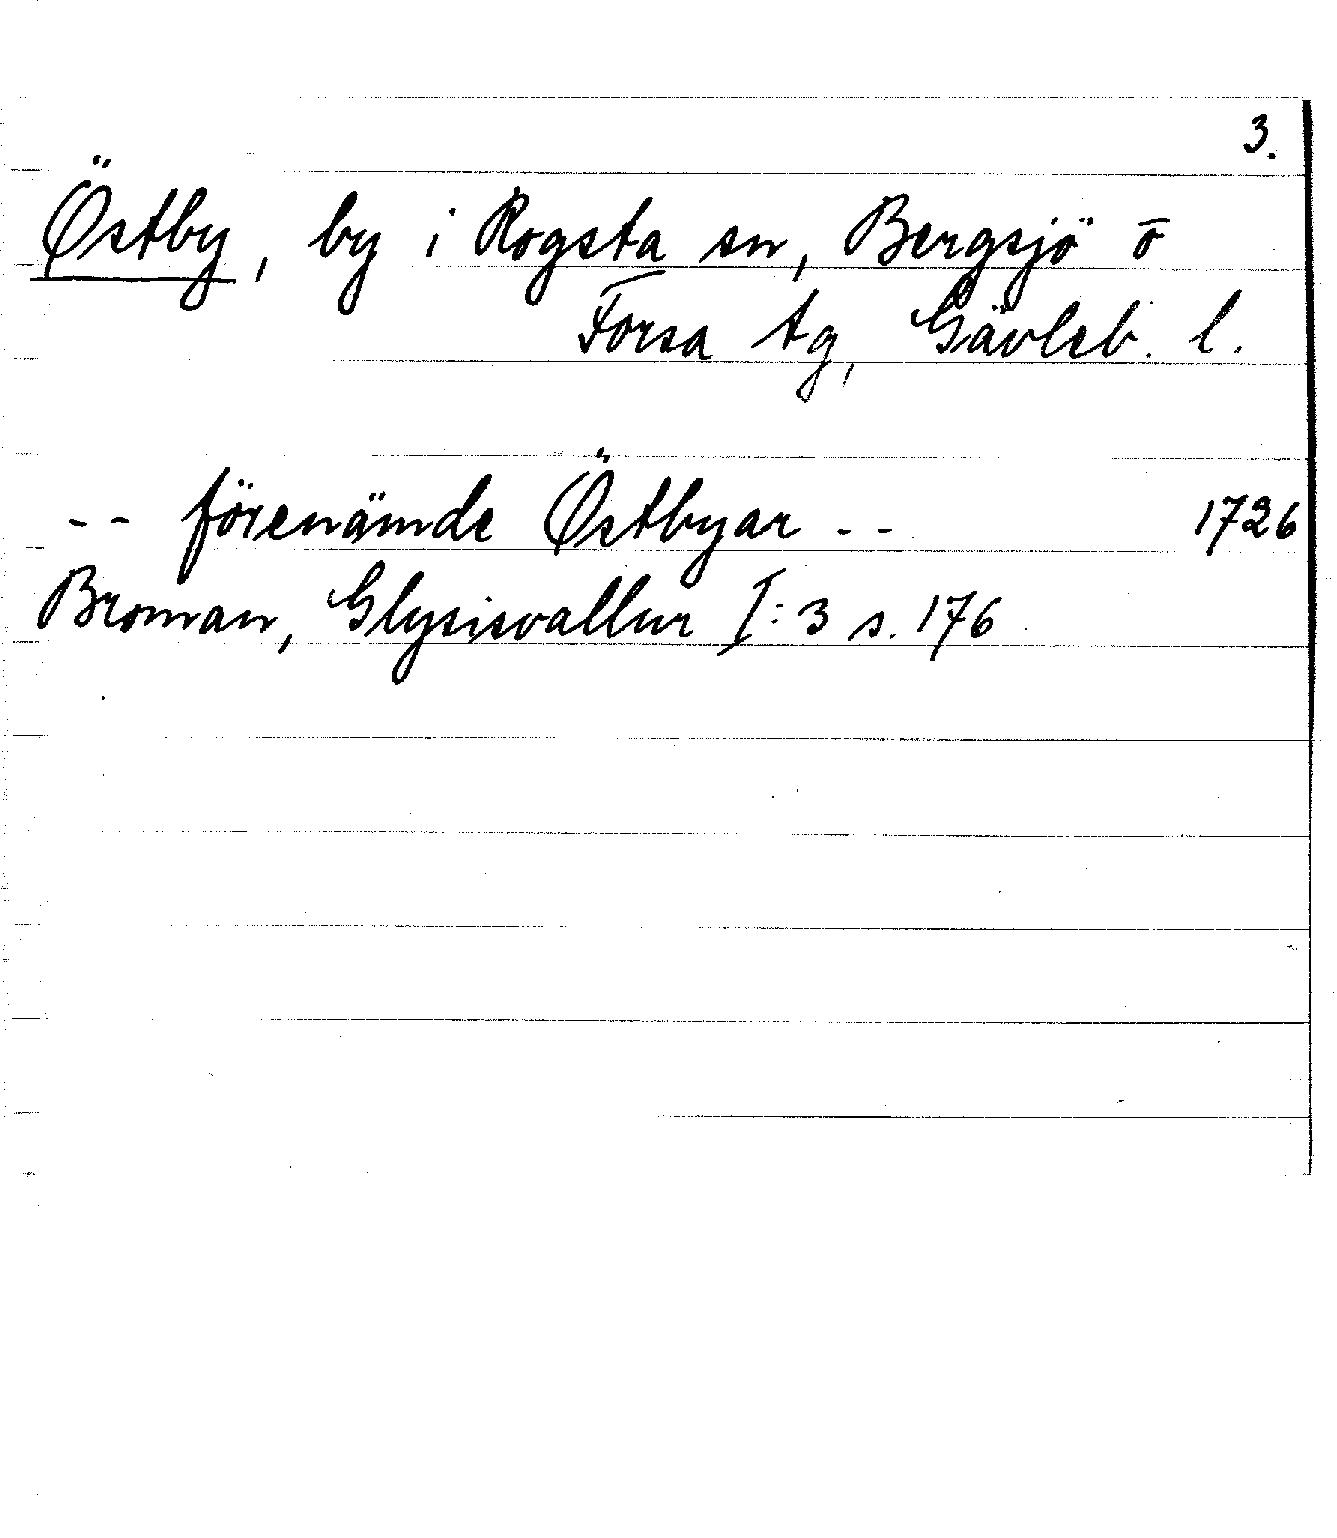 3.
Östby, by i Rogsta sn, Bergsjö o
Forsa tg, Gävleb. l.
-- förenämde Östbyar -- 1726
Broman, Glysisvallur I:3 s. 176